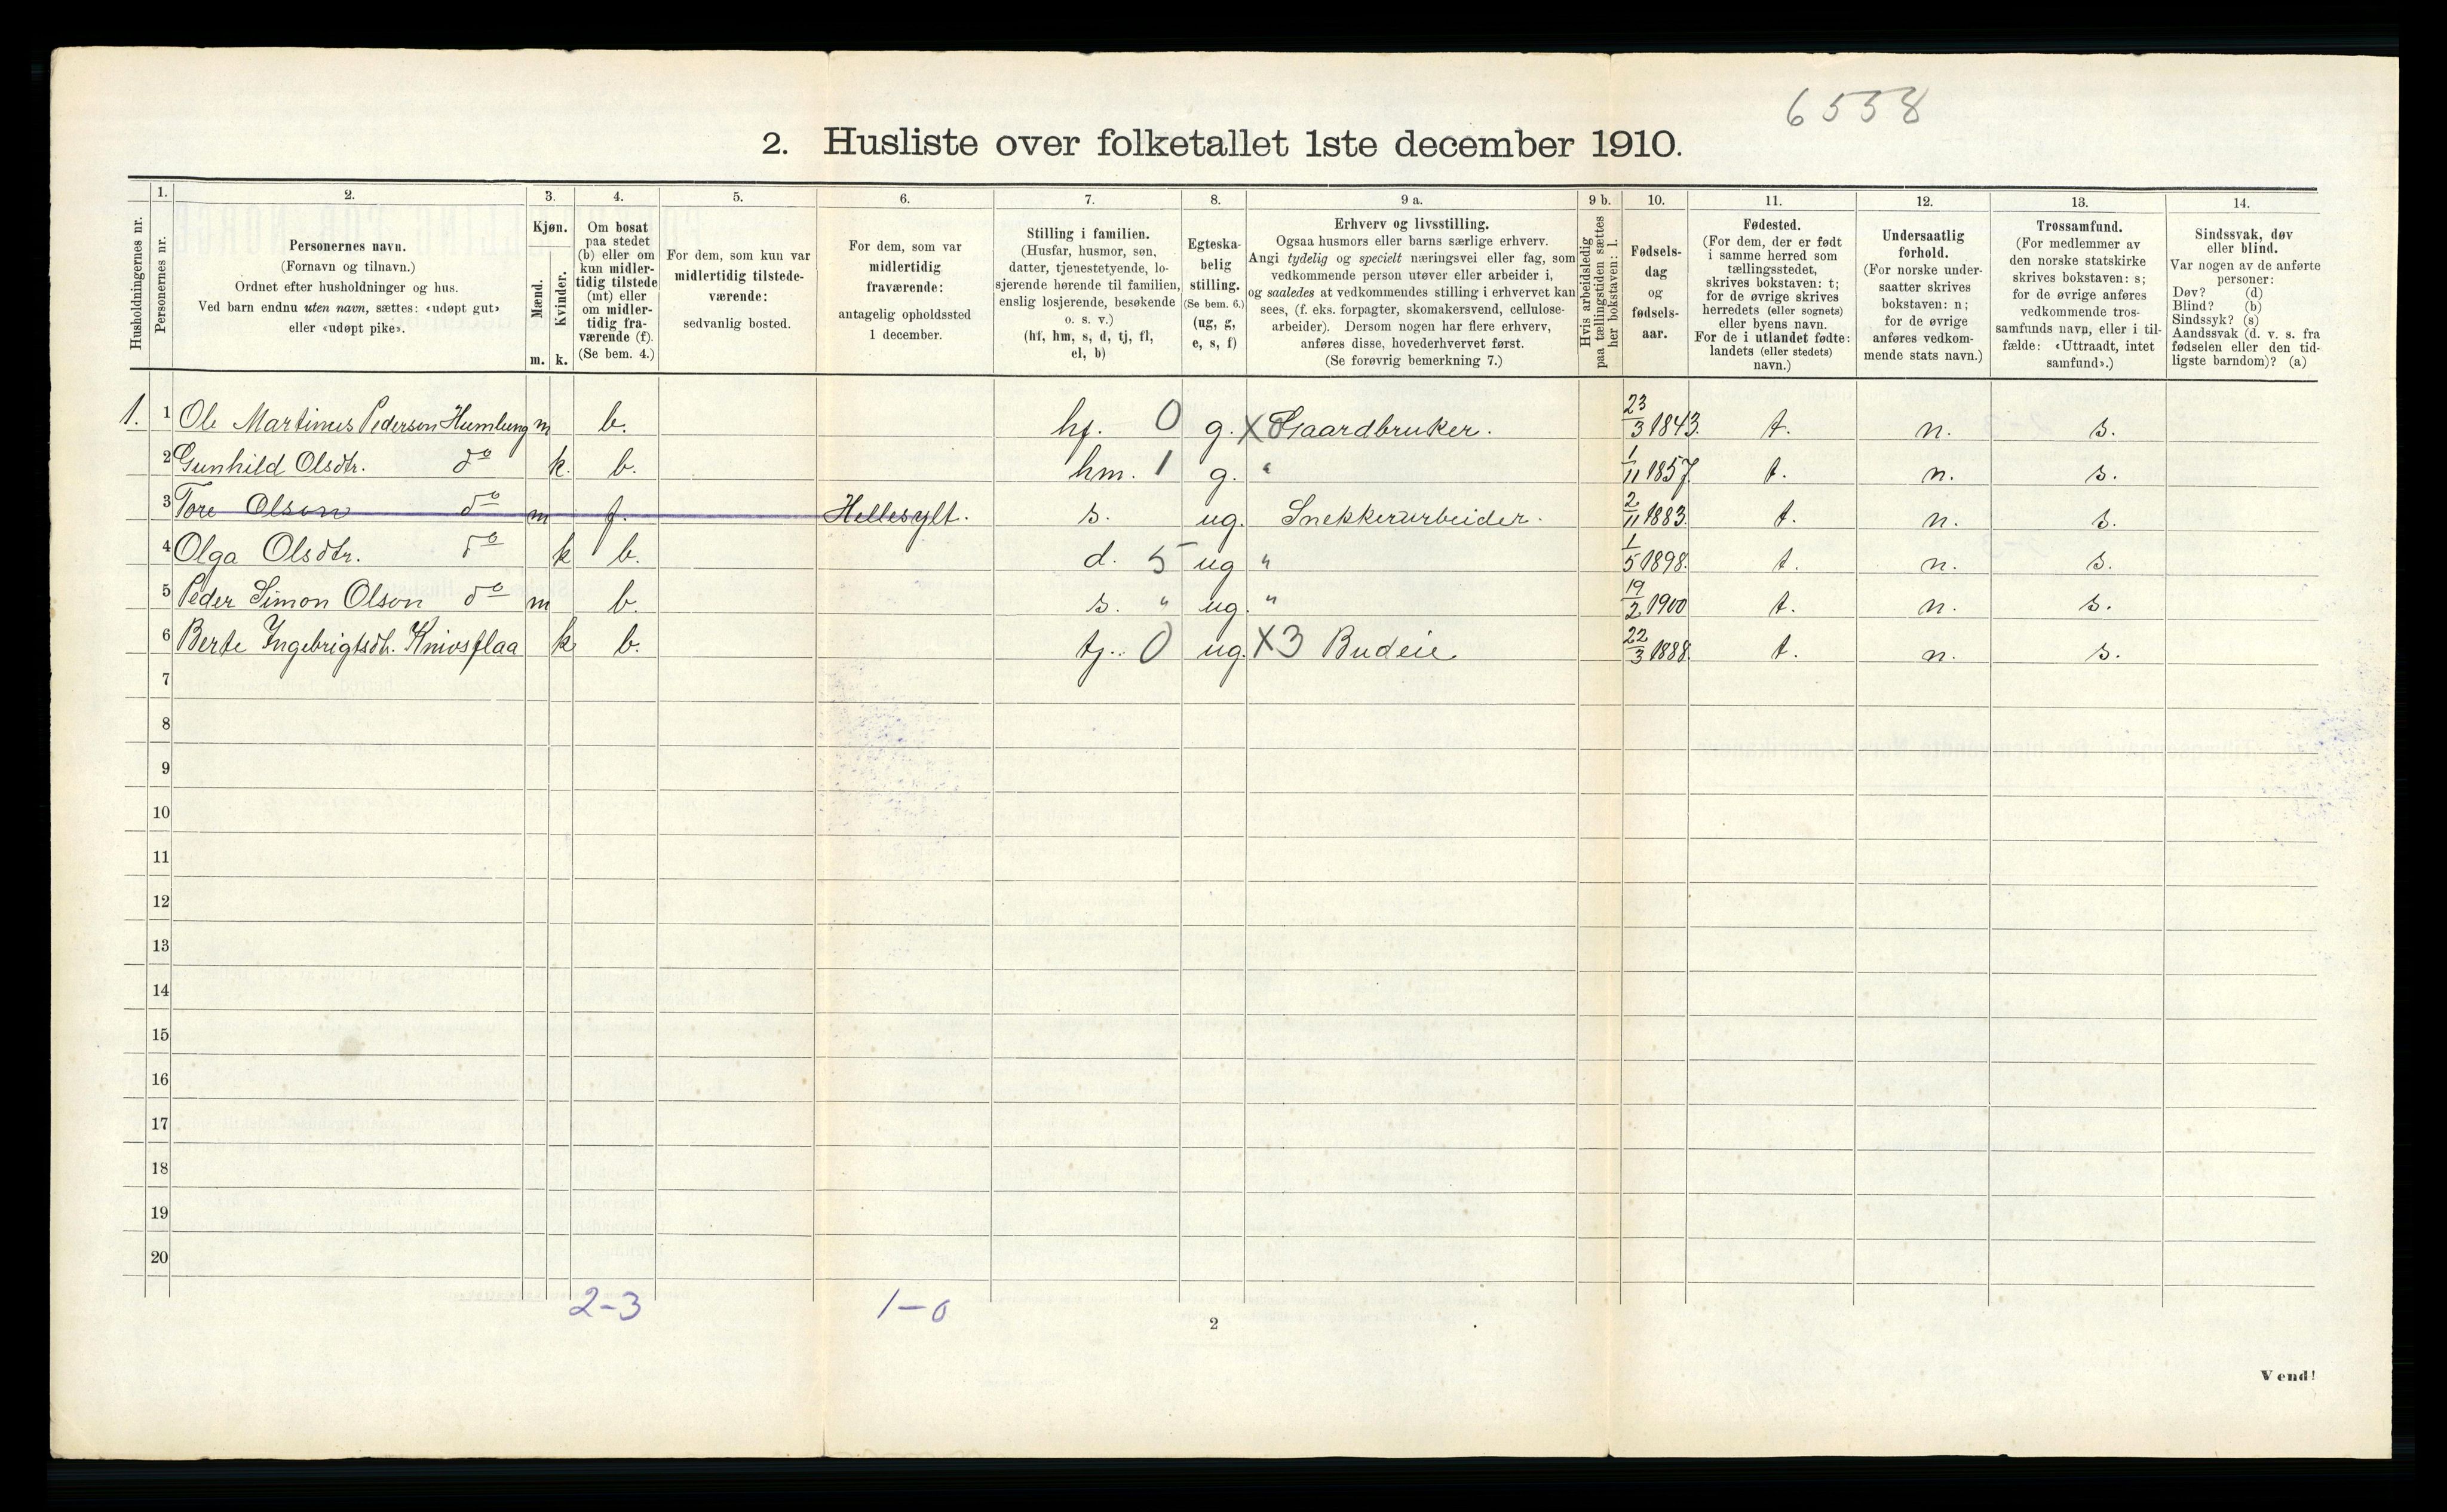 6558
2. Husliste over folketallet 1ste december 1910.
Husholdningernes nr.
1.
Personernes nr.
2.
Personernes navn.
(Fornavn og tilnavn.)
Ordnet efter husholdninger og hus.
Ved barn endnu uten navn, sættes: «udøpt gut»
eller «udøpt pike».
3.
Kjøn.
Mænd.
Kvinder.
m. k.
4.
Om bosat
paa stedet
(b) eller om
kun midler-
tidig tilstede
(mt) eller
om midler-
tidig fra-
værende (f).
(Se bem. 4.)
5.
For dem, som kun var
midlertidig tilstede-
værende:
sedvanlig bosted.
6.
For dem, som var
midlertidig
fraværende:
antagelig opholdssted
1 december.
7.
Stilling i familien.
(Husfar, husmor, søn,
datter, tjenestetyende, lo-
sjerende hørende til familien,
enslig losjerende, besøkende
o. s. v.)
(hf, hm, s, d, tj, fl,
el, b)
8.
Egteska-
belig
stilling.
(Se bem. 6.)
(ug, g,
e, s, f)
9 a.
Erhverv og livsstilling.
Ogsaa husmors eller barns særlige erhverv.
Angi tydelig og specielt næringsvei eller fag, som
vedkommende person utøver eller arbeider i,
og saaledes at vedkommendes stilling i erhvervet kan
sees, (f. eks. forpagter, skomakersvend, cellulose-
arbeider). Dersom nogen har flere erhverv,
anføres disse, hovederhvervet først.
(Se forøvrig bemerkning 7.)
9 b.
Hvis arbeidsledig
paa tællingstiden sættes
her bokstaven: l.
10.
Fødsels-
dag
og
fødsels-
aar.
11.
Fødested.
(For dem, der er født
i samme herred som
tællingsstedet,
skrives bokstaven: t;
for de øvrige skrives
herredets (eller sognets)
eller byens navn.
For de i utlandet fødte:
landets (eller stedets)
navn.)
12.
Undersaatlig
forhold.
(For norske under-
saatter skrives
bokstaven: n;
for de øvrige
anføres vedkom-
mende stats navn.)
13.
Trossamfund.
(For medlemmer av
den norske statskirke
skrives bokstaven: s;
for de øvrige anføres
vedkommende tros-
samfunds navn, eller i til-
fælde: «Uttraadt, intet
samfund».)
14.
Sindssvak, døv
eller blind.
Var nogen av de anførte
personer:
Døv? (d)
Blind? (b)
Sindssyk? (s)
Aandssvak (d. v. s. fra
fødselen eller den tid-
ligste barndom)? (a)
1. 1 Ole Martinus Pederson Humlung m b. hf. 0 g. X Gaardbruker. 23/3 1843. t. n. s.
2 Gunhild Olsdtr. do k. b. hm. 1 g. " 1/11 1857. t. n. s.
3 Tore Olson do m f. Hellesylt. s. ug. Snekkerarbeider. 2/11 1883. t. n. s.
4 Olga Olsdtr. do k b. d. 5 ug " 1/5 1898. t. n. s.
5 Peder Simon Olson do m b. s. " ug. " 19/2 1900 t. n. s.
6 Berte Ingebrigtsdtr. Knivsflaa k b. tj. 0 ug. X3 Budeie 22/3 1888. t. n. s.
7
8
9
10
11
12
13
14
15
16
17
18
19
20
2-3 1-0
2
Vend!